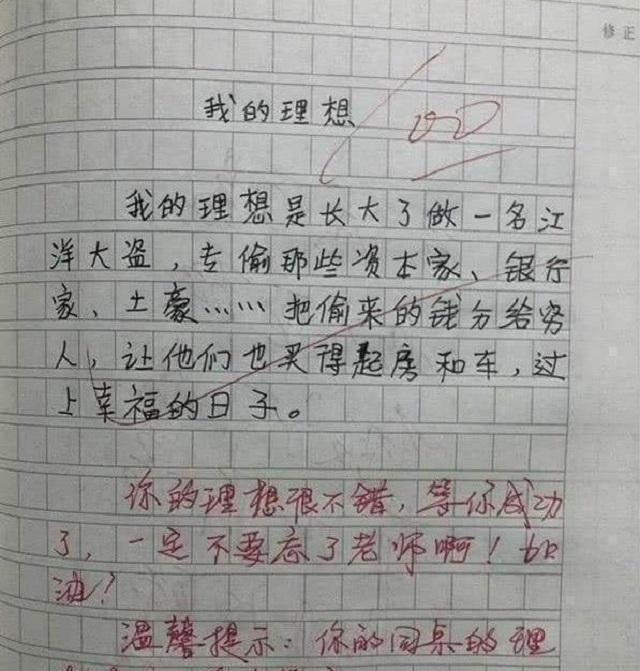 修正
我的理想
100
我的理想是长大了做一名江
洋大盗,专偷那些资本家、银行
家、土豪……把偷来的钱分给穷
人,让他们也买得起房和车,过
上幸福的日子。
你的理想很不错,等你成功
了,一定不要忘了老师啊!加
油!
温馨提示:你的同桌的理